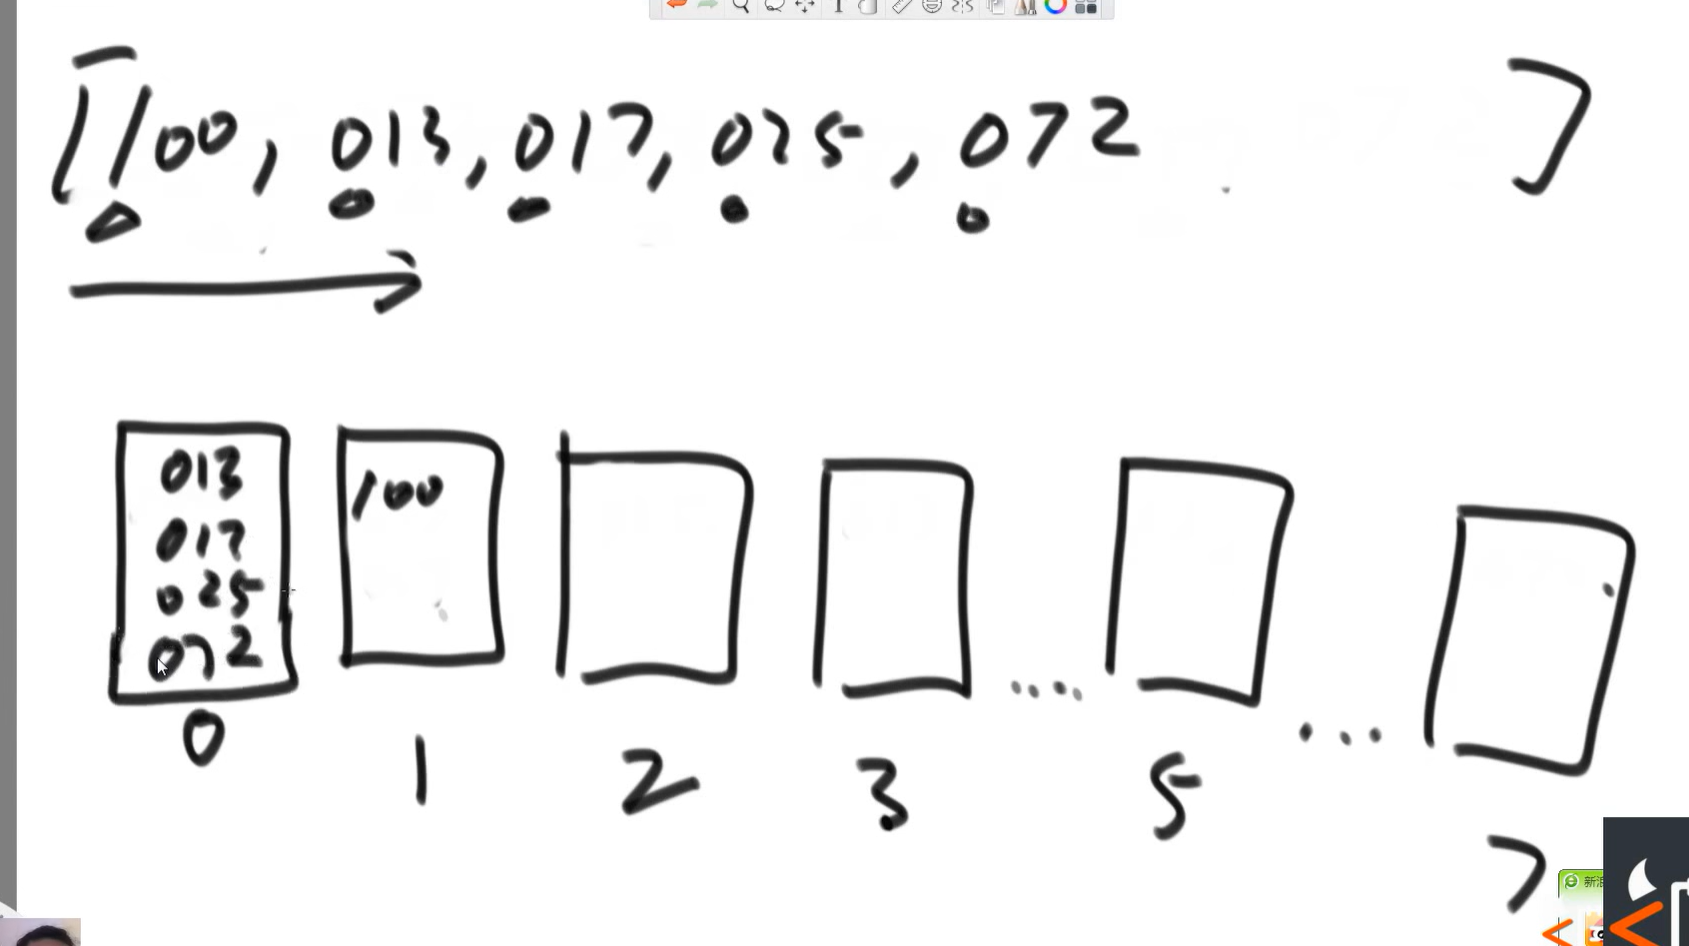 [100, 013, 017, 025, 072 ]
013
017
025
072
100
....
...
0
1
2
3
5
7